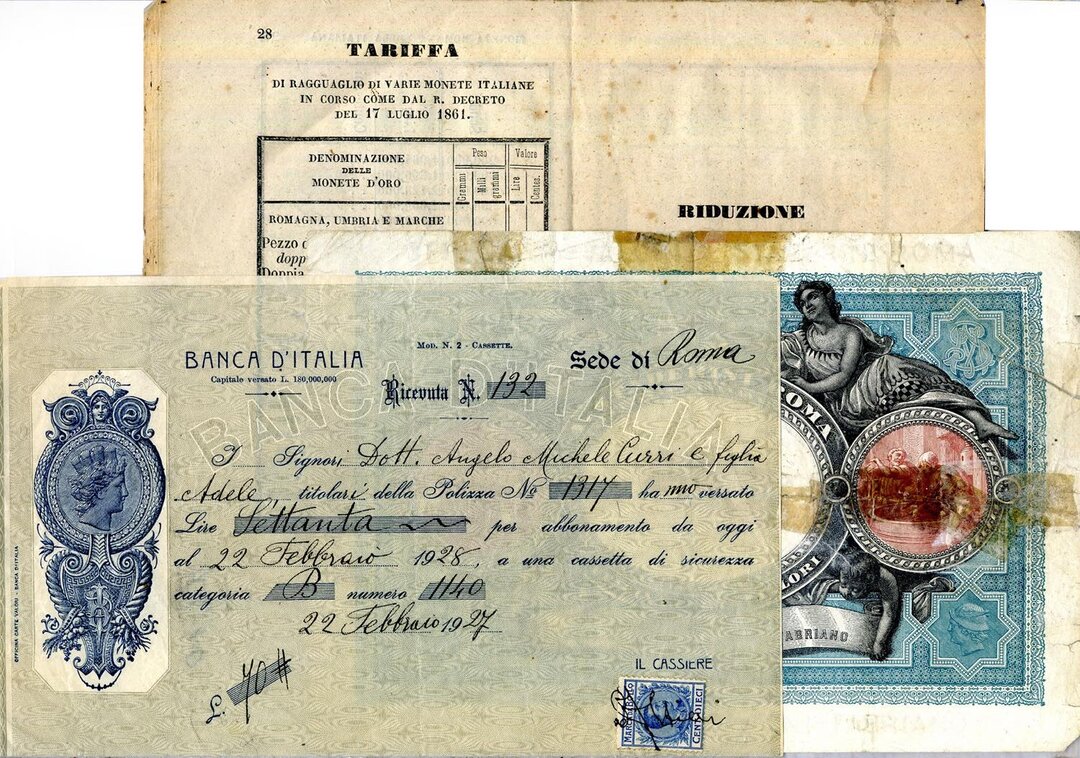 28
TARIFFA
DI RAGGUAGLIO DI VARIE MONETE ITALIANE
IN CORSO COME DAL R. DECRETO
DEL 17 LUGLIO 1861.
DENOMINAZIONE
DELLE
MONETE D'ORO
Peso
Valore
Grammi
Milli
grammi
Lire
Centes.
ROMAGNA, UMBRIA E MARCHE
Pezzo d
dopp
Doppia
RIDUZIONE
BANCA D'ITALIA
Capitale versato L. 180,000,000
Mod. N. 2 - Cassette.
Ricevuta N. 132
Sede di Roma
BANCA D'ITALIA
I Signori Dott. Angelo Michele Curri e figlia
Adele, titolari della Polizza No 1317 hanno versato
Lire Settanta per abbonamento da oggi
al 22 Febbraio 1928, a una cassetta di sicurezza
categoria B numero 1140
22 Febbraio 1927
L. 70#
IL CASSIERE
MARCA
CENT. DIECI
OFFICINA CARTE VALORI - BANCA D'ITALIA
ROMA
LORI
ABRIANO